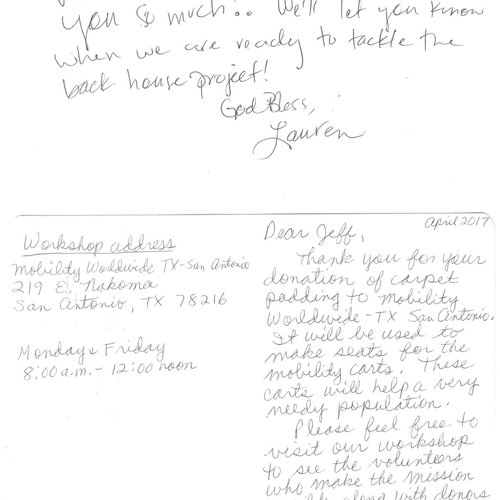 you so much!! We'll let you know
when we are ready to tackle the
back house project!
God Bless,
Lauren
Workshop address
Mobility Worldwide TX-San Antonio
219 E. Nakoma
San Antonio, TX 78216
Mondays Friday
8:00 a.m. - 12:00 noon
April 2017
Dear Jeff,
Thank you for your
donation of carpet
padding to Mobility
Worldwide-TX San Antonio.
It will be used to
make seats for the
mobility carts. These
carts will help a very
needy population.
Please feel free to
visit our workshop
to see the volunteers
who make the mission
along with donors